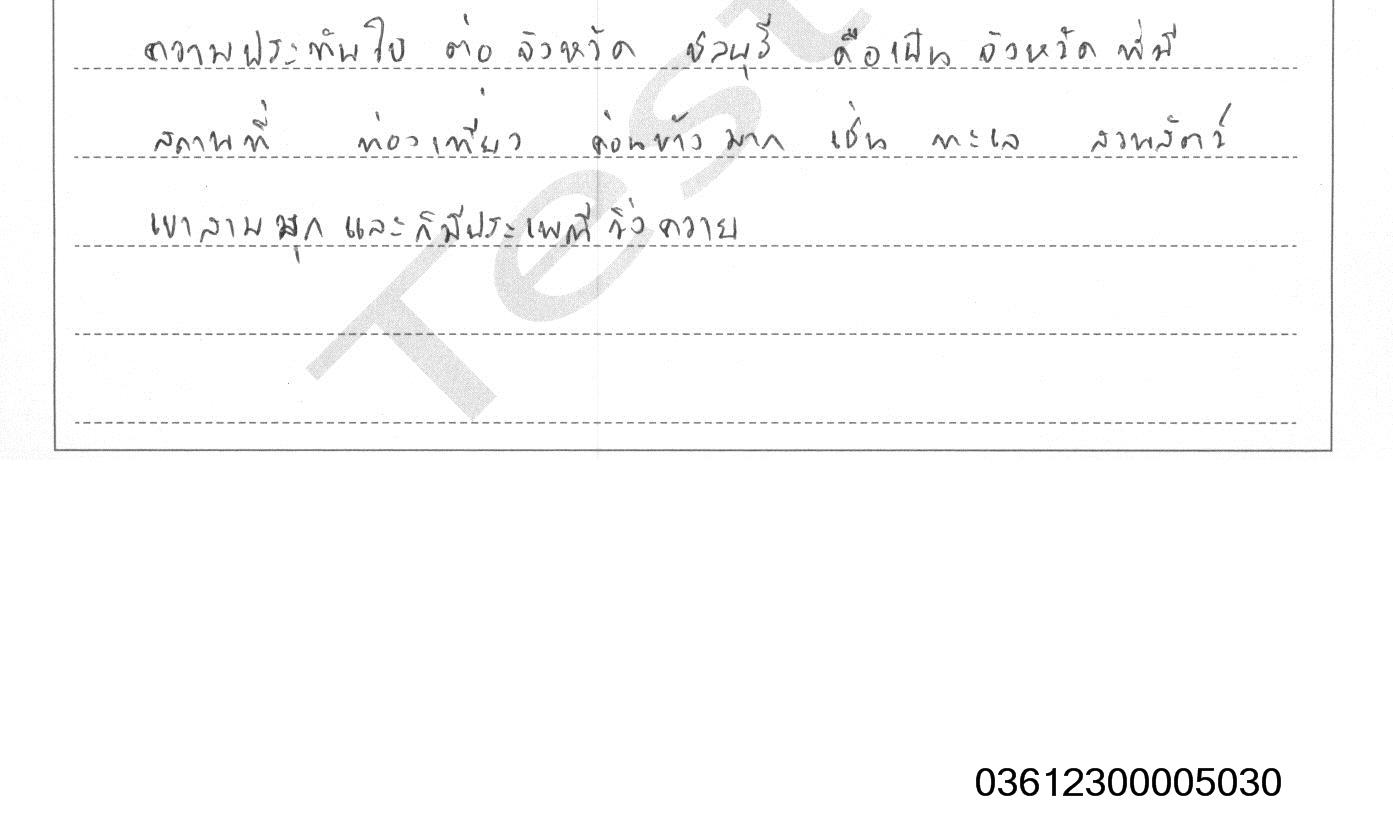 ความประทับใจ ต่อ จังหวัด ชลบุรี คือเป็น จังหวัด ที่มี
สถานที่ ท่องเที่ยว ค่อนข้าง มาก เช่น ทะเล สวนสัตว์
เขาสามมุก และก็มีประเพณี วิ่ง ควาย
Test
03612300005030